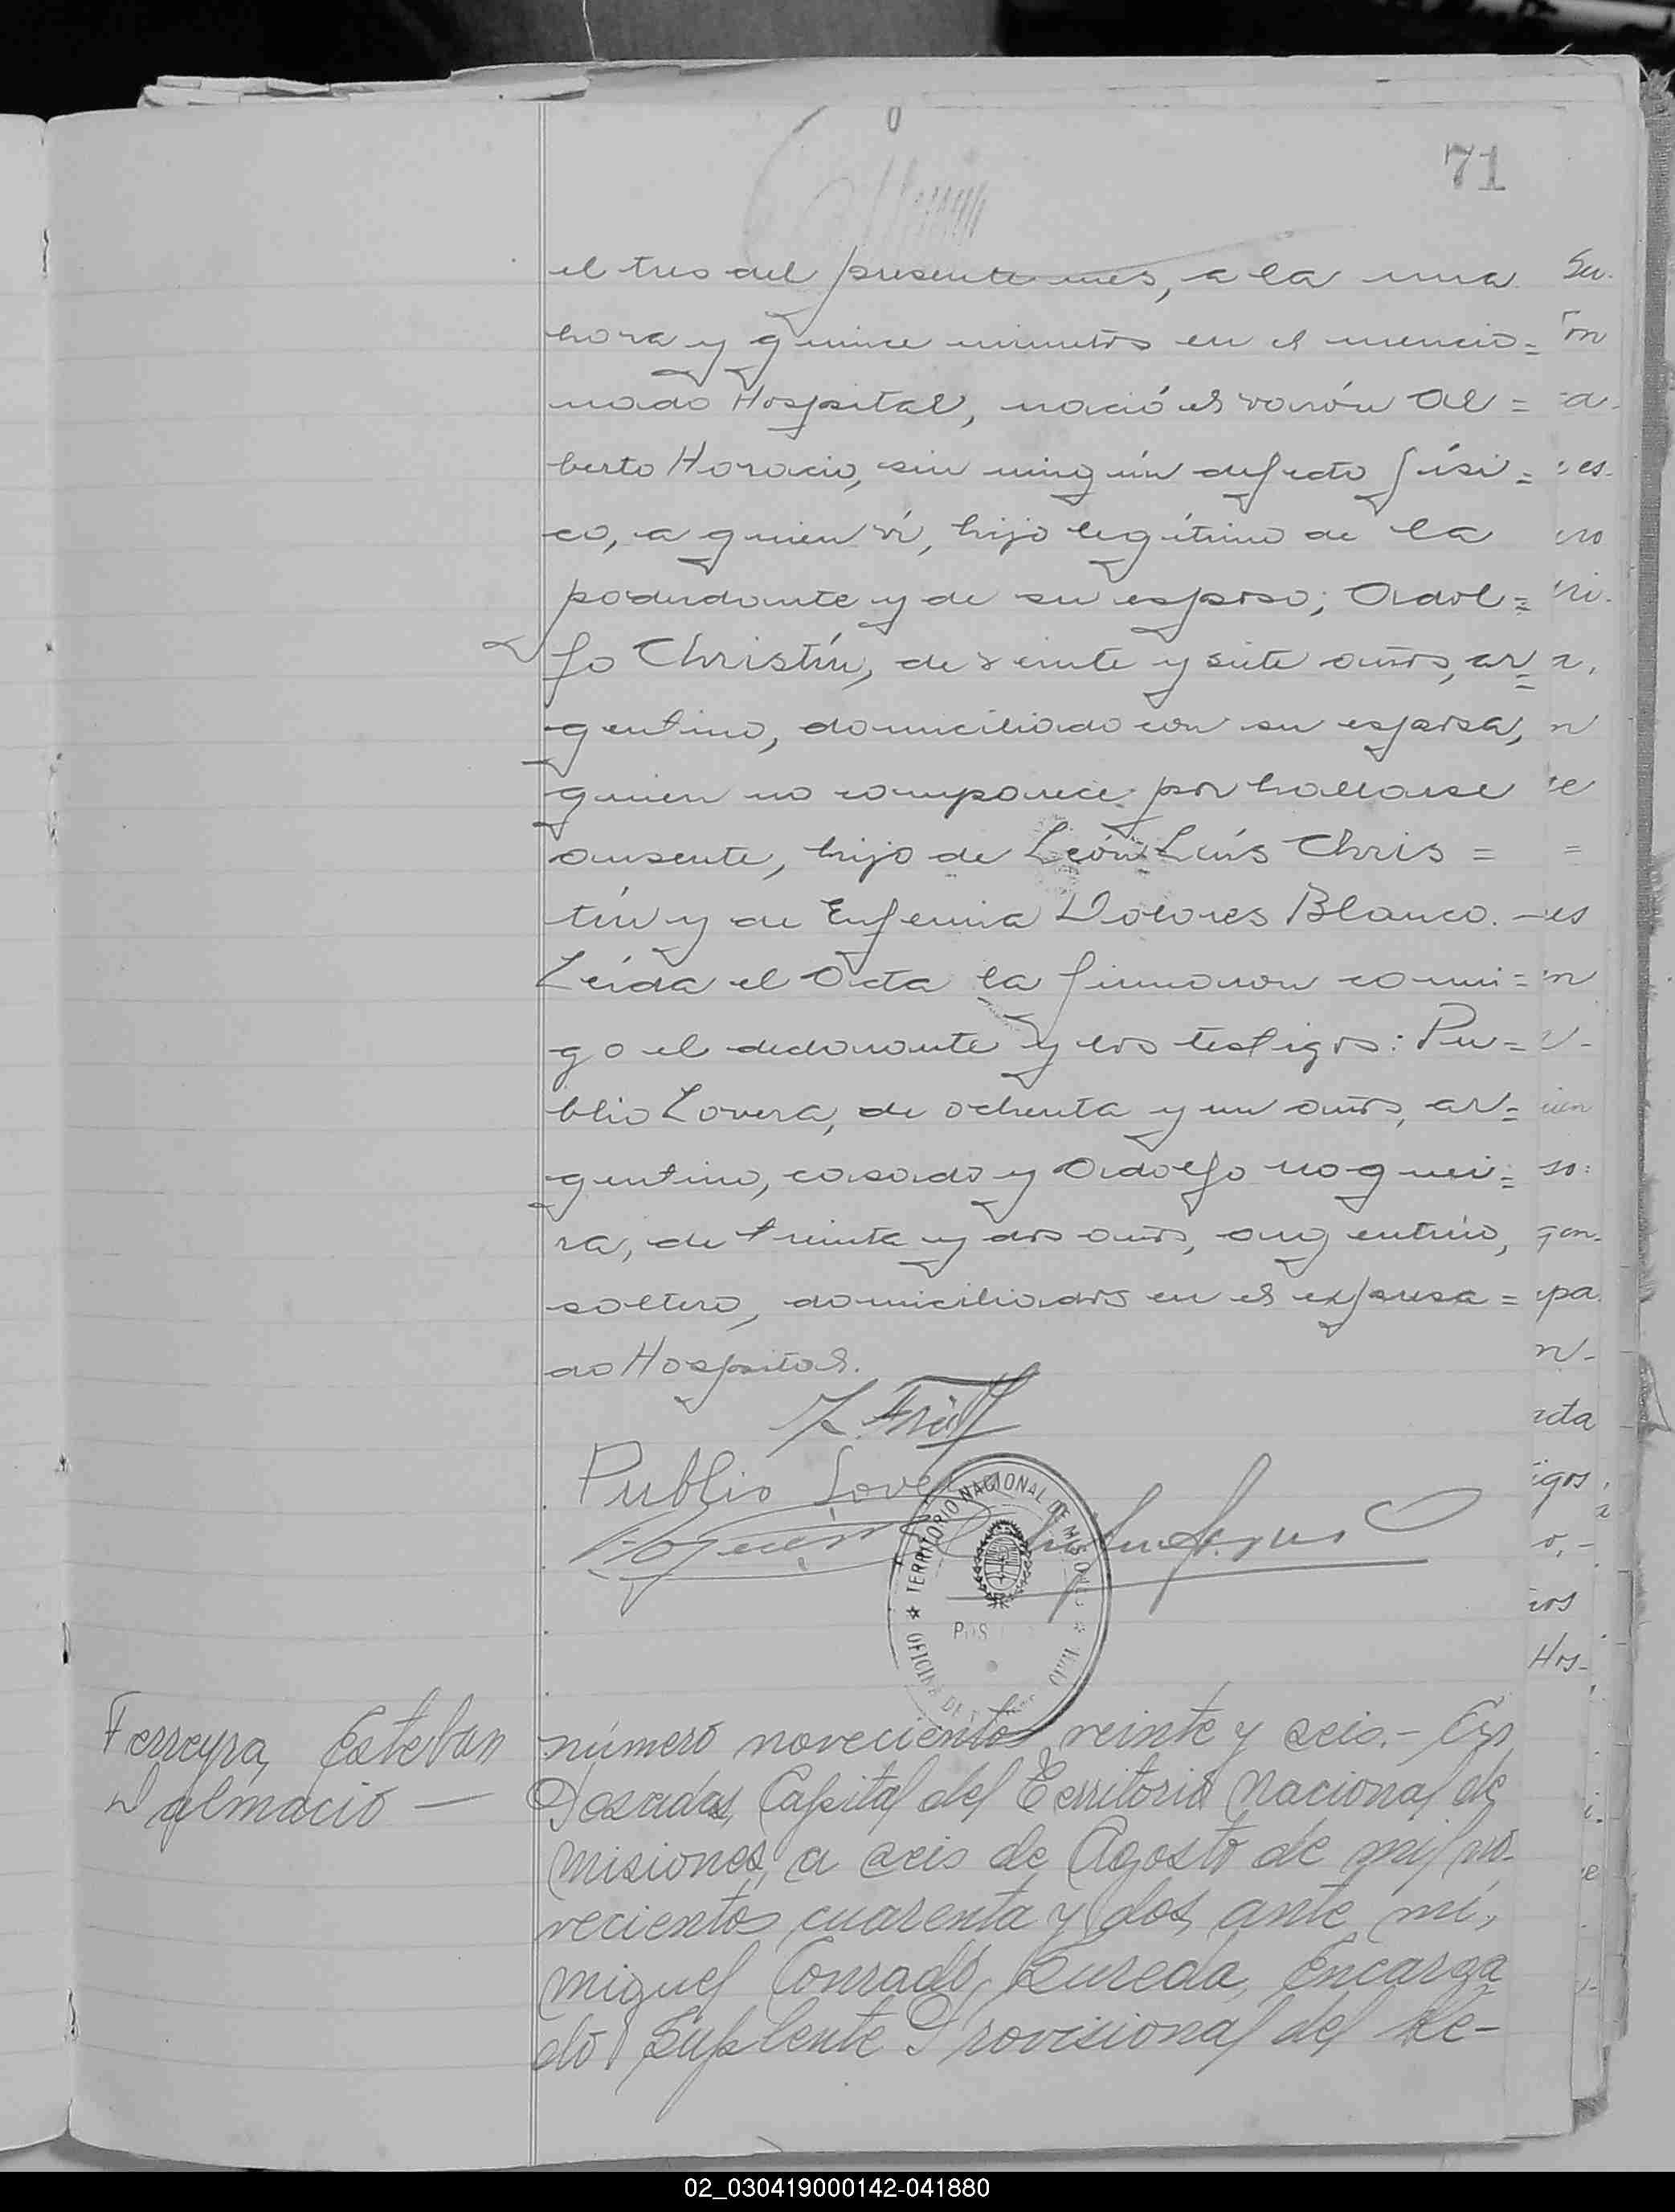 71
el tres del presente mes, a la una
hora y quince minutos en el mencio=
nado Hospital, nació el varón Al=
berto Horacio, sin ningún defecto físi=
co, a quien ví, hijo legítimo de la
poderdante y de su esposo; Adol=
fo Christín, de veinte y siete años, ar=
gentino, domiciliado con su esposa,
quien no comparece por hallarse
ausente, hijo de León Luís Chris=
tín y de Eufemia Dolores Blanco.
Leída el Acta la firmaron conmi=
go el declarante y los testigos: Pu=
blio Lovera, de ochenta y un años, ar=
gentino, casado y Adolfo Noguei=
ra, de treinta y dos años, argentino,
soltero, domiciliados en el expresa=
do Hospital.
Publio Lovera
TERRITORIO NACIONAL DE MISIONES
OFICINA DE
POS
Ferreyra, Esteban
Dalmacio —
número novecientos veinte y seis.- En
Posadas, Capital del Territorio Nacional de
Misiones, a seis de Agosto de mil no-
vecientos cuarenta y dos, ante mí,
Miguel Conrado Zureda, Encarga
do Suplente Provisional del Re-
02_030419000142-041880